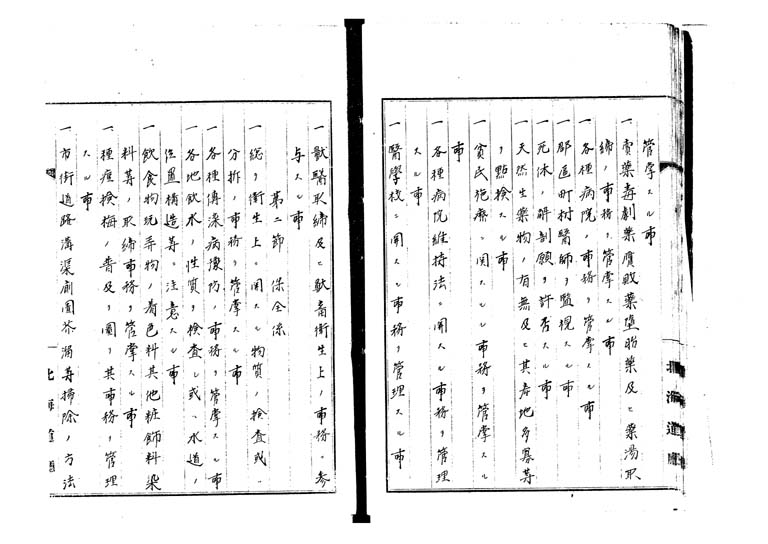 管掌スル事
一 賣薬毒劇薬贋敗薬堕胎薬及ヒ薬湯取
締ノ事務ヲ管掌スル事
一 各種病院ノ事務ヲ管掌スル事
一 郡区町村医師ヲ監視スル事
一 死体ノ解剖願ヲ許否スル事
一 天然生薬物ノ有無及ヒ其産地多寡等
ヲ點検スル事
一 貧民施療ニ関スル事務ヲ管掌スル
事
一 各種病院維持法ニ関スル事務ヲ管理
スル事
一 醫學校ニ関スル事務ヲ管理スル事
北海道廳
一 獣醫取締及ヒ獣畜衛生上ノ事務ニ参
与スル事
第二節 保全係
一 総テ衛生上ニ関スル物質ノ検査或ハ
分析ノ事務ヲ管掌スル事
一 各種傳染病豫防ノ事務ヲ管掌スル事
一 各地飲水ノ性質ヲ検査シ或ハ水道ノ
位置構造等ニ注意スル事
一 飲食物玩弄物ノ着色料其他粧飾料染
料等ノ取締事務ヲ管掌スル事
一 種痘検梅ノ普及ヲ図リ其事務ヲ管理
スル事
一 市街道路溝渠厠圊芥溜等掃除ノ方法
北海道廳